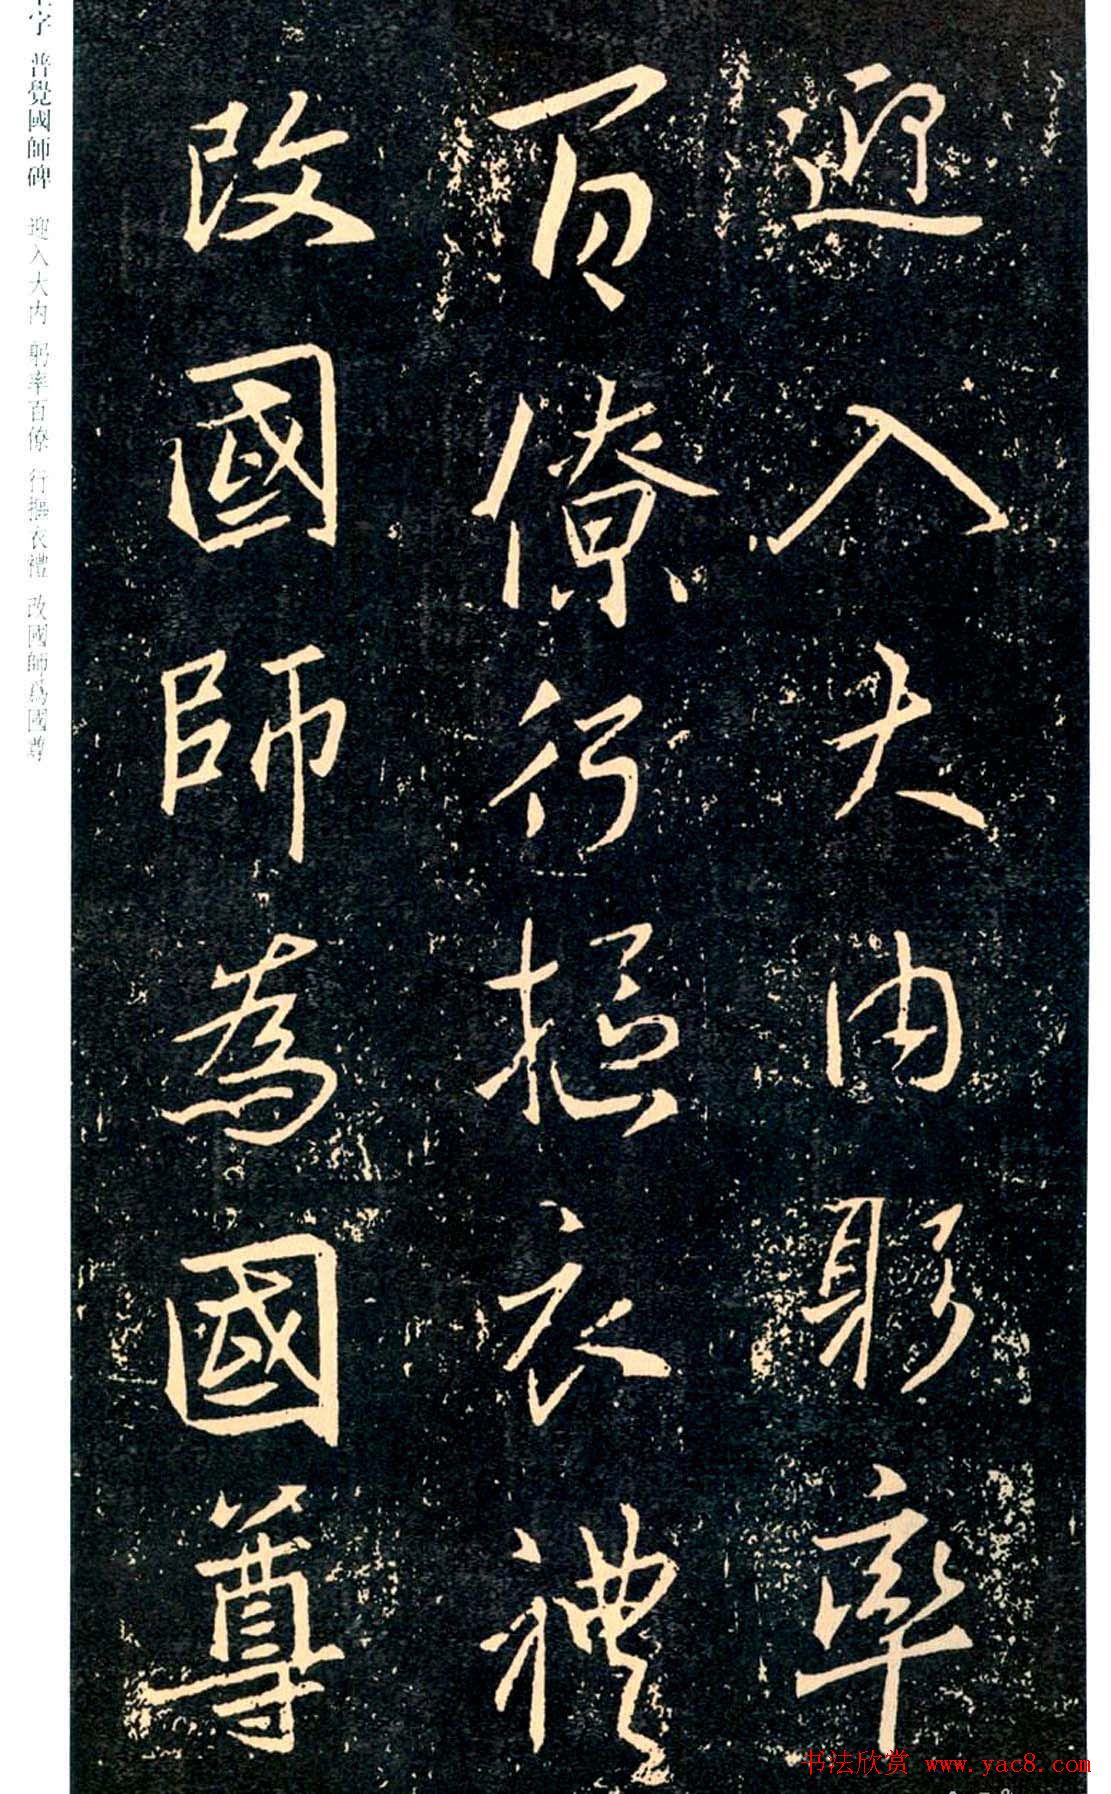 迎入大内躬率
百僚行摳衣禮
改國師為國尊
王字 普覺國師碑 迎入大内 躬率百僚 行摳衣禮 改國師爲國尊
书法欣赏 www.yac8.com